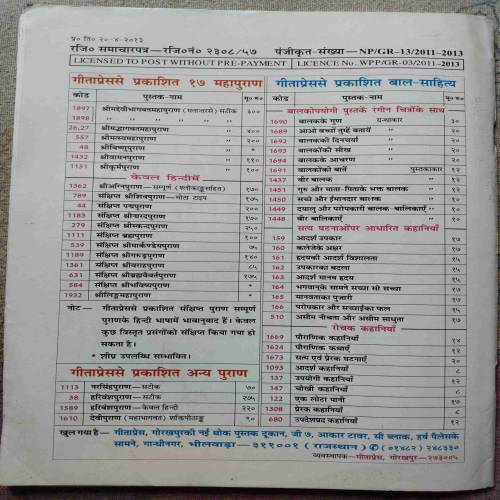 प्र० ति० २०-४-२०१३
रजि० समाचारपत्र—रजि०नं० २३०८/५७ पंजीकृत-संख्या—NP/GR-13/2011-2013
LICENSED TO POST WITHOUT PRE-PAYMENT LICENCE No. WPP/GR-03/2011-2013
गीताप्रेससे प्रकाशित १७ महापुराण
कोड पुस्तक-नाम मू०रु०
1897 श्रीमद्देवीभागवतमहापुराण सटीक ३००
1898 " " " "
26,27 श्रीमद्भागवतमहापुराण " ४००
557 श्रीमत्स्यमहापुराण " २००
48 श्रीविष्णुपुराण " *
1432 श्रीवामनपुराण " ११०
1131 श्रीकूर्मपुराण " १००
केवल हिन्दीमें
1362 श्रीअग्निपुराण—सम्पूर्ण १७०
789 संक्षिप्त श्रीशिवपुराण—मोटा टाइप १७५
44 संक्षिप्त पद्मपुराण २००
1183 संक्षिप्त श्रीनारदपुराण १७०
279 संक्षिप्त श्रीस्कन्दपुराण २५०
1111 संक्षिप्त ब्रह्मपुराण १००
539 संक्षिप्त श्रीमार्कण्डेयपुराण ७५
1189 संक्षिप्त श्रीगरुड़पुराण १४०
1361 संक्षिप्त श्रीवराहपुराण ८५
631 संक्षिप्त श्रीब्रह्मवैवर्तपुराण १७५
584 संक्षिप्त श्रीभविष्यपुराण *
1932 श्रीलिङ्गमहापुराण *
नोट— गीताप्रेससे प्रकाशित संक्षिप्त पुराण सम्पूर्ण
पुराणके हिन्दी भाषामें भावानुवाद हैं। केवल
कुछ विस्तृत प्रसंगोंको संक्षिप्त किया गया हो
सकता है।
* शीघ्र उपलब्धि सम्भावित।
गीताप्रेससे प्रकाशित अन्य पुराण
1113 नरसिंहपुराण—सटीक ७०
38 हरिवंशपुराण—सटीक २७५
1589 हरिवंशपुराण—केवल हिन्दी २२०
1610 देवीपुराण (महाभागवत) शक्तिपीठाङ्क ९०
गीताप्रेससे प्रकाशित बाल-साहित्य
कोड पुस्तक-नाम मू०रु०
बालकोपयोगी पुस्तकें रंगीन चित्रोंके साथ
1690 बालकके गुण ग्रन्थाकार ३०
1689 आओ बच्चों तुम्हें बतायें " २०
1692 बालककी दिनचर्या " २०
1693 बालकोंकी सीख " २०
1694 बालकके आचरण " २०
1691 बालकोंकी बातें पुस्तकाकार १२
1437 वीर बालक " १२
1451 गुरु और माता-पिताके भक्त बालक " १०
1450 सच्चे और ईमानदार बालक " १०
1449 दयालु और परोपकारी बालक-बालिकाएँ " १०
1448 वीर बालिकाएँ " १०
सत्य घटनाओंपर आधारित कहानियाँ
159 आदर्श उपकार १७
160 कलेजेके अक्षर १७
161 हृदयकी आदर्श विशालता १५
162 उपकारका बदला १५
163 आदर्श मानव हृदय १५
164 भगवान्‌के सामने सच्चा सो सच्चा १५
165 मानवताका पुजारी १७
166 परोपकार और सच्चाईका फल १५
510 असीम नीचता और असीम साधुता १७
रोचक कहानियाँ
1669 पौराणिक कहानियाँ १४
1624 पौराणिक कथाएँ १२
1673 सत्य एवं प्रेरक घटनाएँ २०
1093 आदर्श कहानियाँ
137 उपयोगी कहानियाँ १२
147 चोखी कहानियाँ ८
122 एक लोटा पानी १७
1308 प्रेरक कहानियाँ ८
680 उपदेशप्रद कहानियाँ १२
खुल गया है— गीताप्रेस, गोरखपुरकी नई थोक पुस्तक दूकान, जी ७, आकार टावर, सी ब्लाक, हर्ष पैलेसके
सामने, गान्धीनगर, भीलवाड़ा—३११००१ (राजस्थान) ✆ (०१४८२) २४८३३०
व्यवस्थापक—गीताप्रेस, गोरखपुर—२७३००५